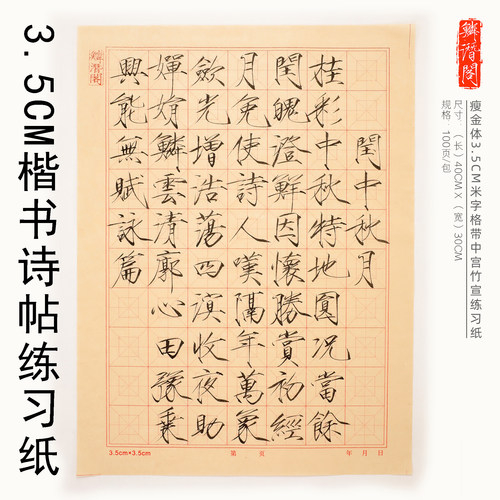 3.5CM楷书诗帖练习纸
鱗潛閣
瘦金体3.5CM米字格带中宫竹宣练习纸
尺寸：（长）40CM X（宽）30CM
规格：100页/包
鱗潛閣
閏中秋月
桂彩中秋特地圓況當餘
閏魄澄鮮因懷勝賞初經
月免使詩人嘆隔年萬象
斂光增浩蕩四溟收夜助
嬋娟鱗雲清廓心田豫乘
興能無賦詠篇
3.5cm*3.5cm 第 页 年 月 日